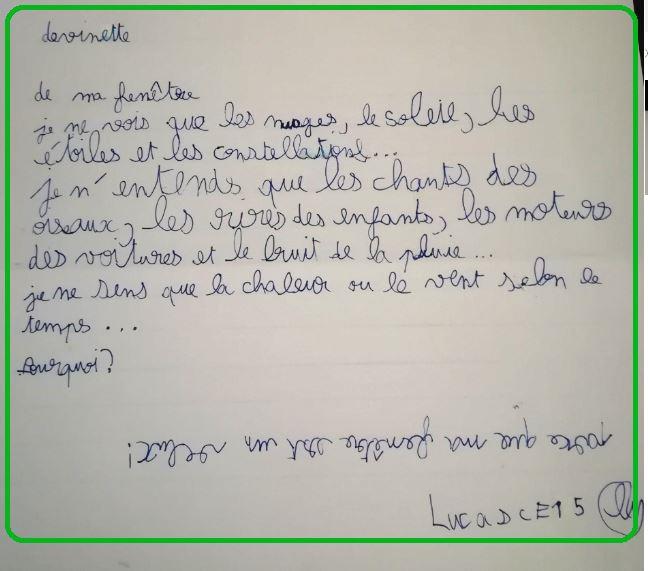 devinette
de ma fenêtre
je ne vois que les nuages, le soleie, les
étoiles et les constellations...
je n'entends que les chants des
oiseaux, les rires des enfants, les moteurs
des voitures et le bruit de la pluie...
je ne sens que la chaleur ou le vent selon le
temps...
pourquoi?
parce que ma fenêtre est un velux!
LUCAS CE1 5